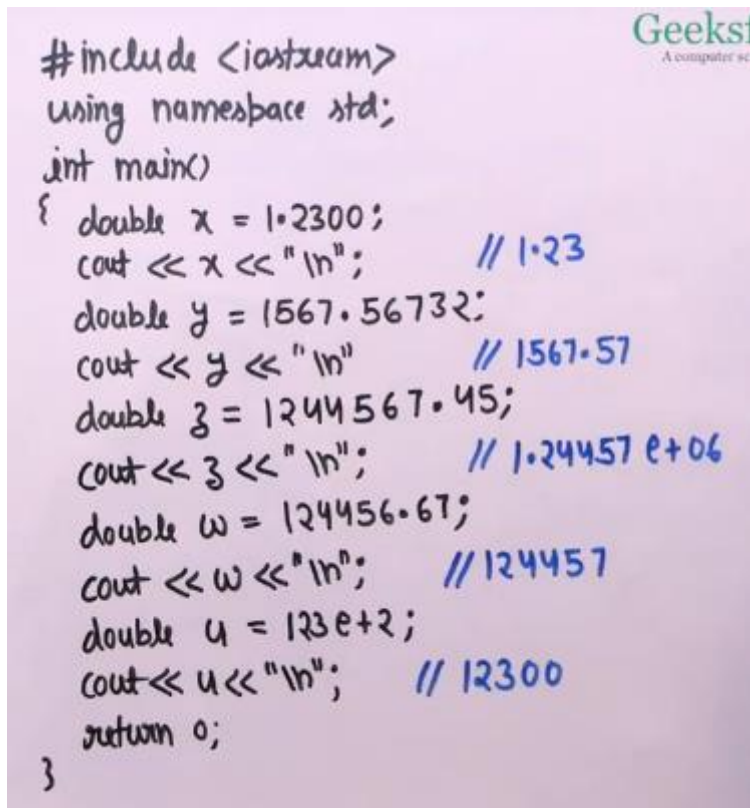 Geeksf
A computer sc
#include <iostream>
using namespace std;
int main()
{ double x = 1.2300;
cout << x << "\n"; // 1.23
double y = 1567.56732;
cout << y << "\n" // 1567.57
double z = 1244567.45;
cout << z << "\n"; // 1.24457 e+06
double w = 124456.67;
cout << w << "\n"; // 124457
double u = 123e+2;
cout << u << "\n"; // 12300
return 0;
}